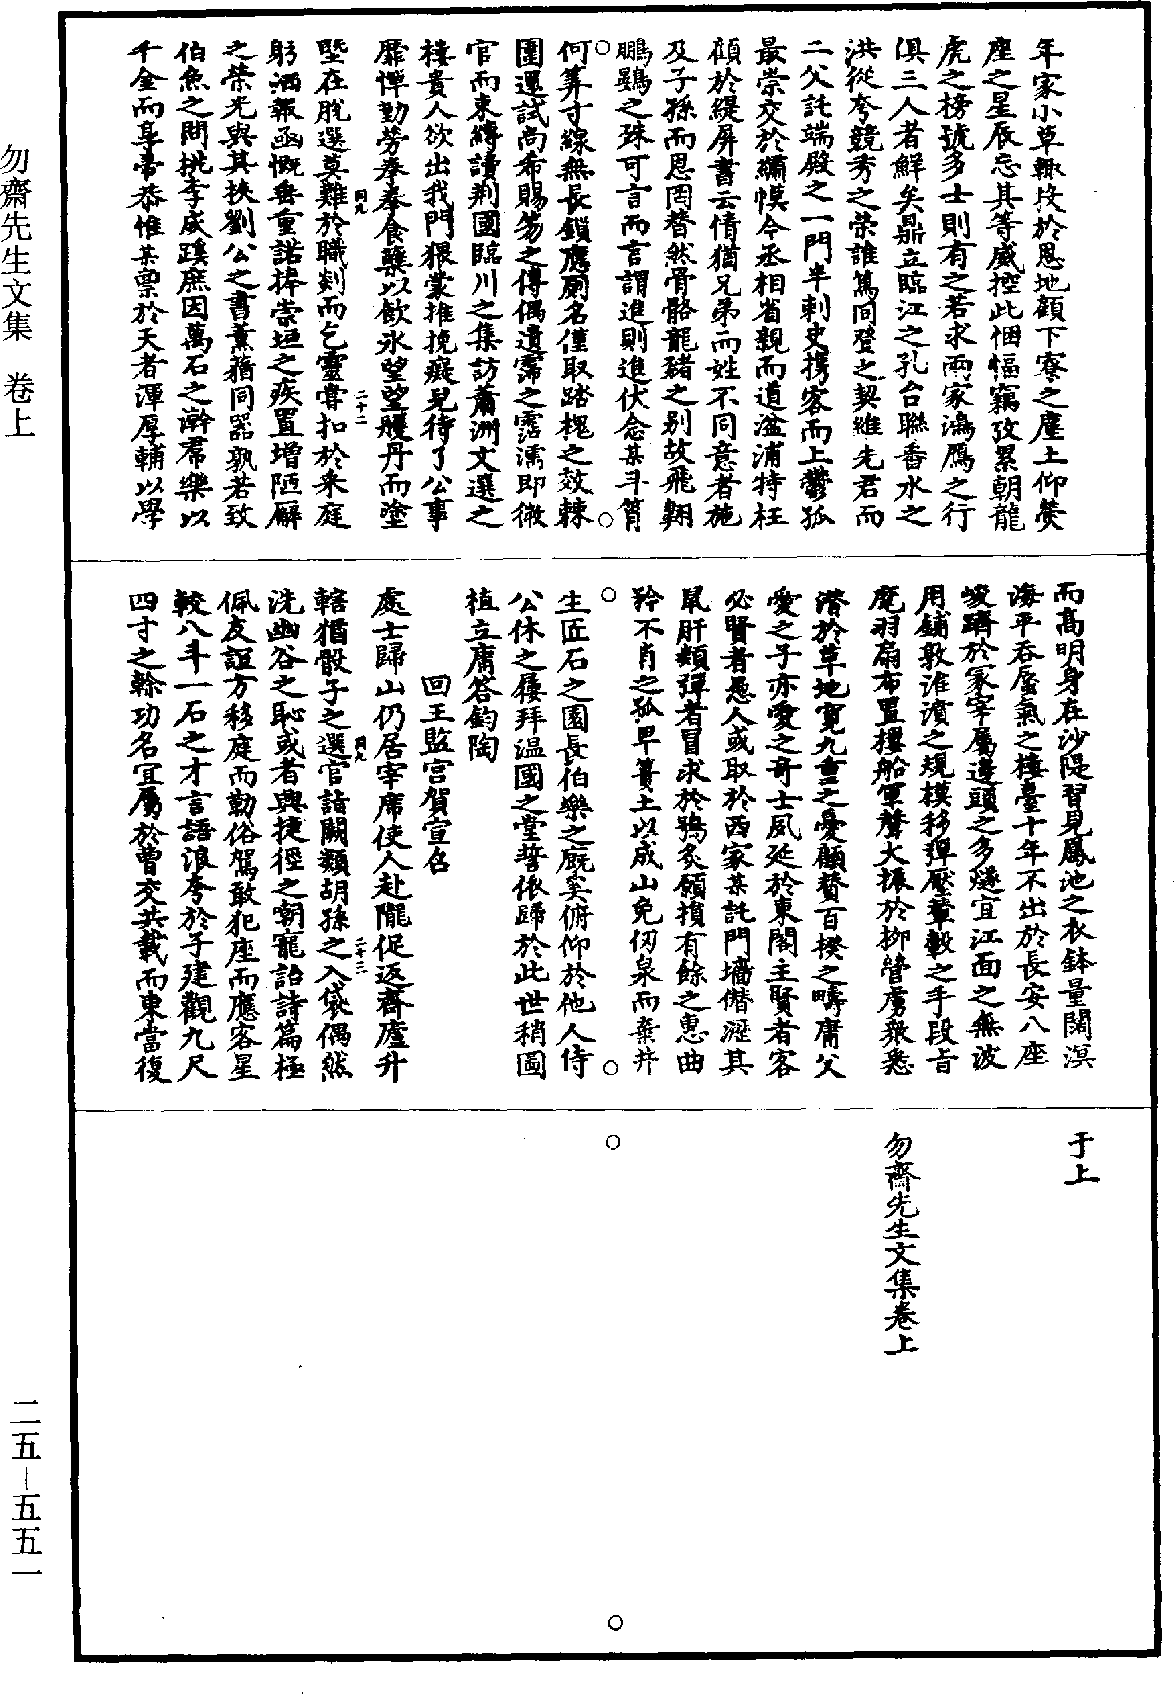 年家小草輙投於恩地顧下寮之塵土仰熒
座之星辰忘其等威控此悃愊竊攷累朝龍
虎之榜號多士則有之若求兩家鴻鴈之行
俱三人者鮮矣鼎立臨江之孔合聯香水之
洪從夸競秀之榮誰篤同登之契維先君而
二父託端殿之一門半刺史携客而上鬱孤
最崇交於繡幙今丞相省親而道湓浦特枉
顧於緹屏書云倩猶兄弟而姓不同意者施
及子孫而恩罔替然骨骼龍豬之别故飛翺
鵬鷃之殊可言而言謂進則進伏念某斗筲
何筭寸線無長鎖廳厠名僅取踏槐之效棘
圍還試尚希賜笏之傳偶遺霈之霑濡即微
官而束縛讀荆國臨川之集訪蕭洲文選之
樓貴人欲出我門猥蒙推挽癡兒待了公事
靡憚勤勞奉奉食蘗以飲氷望望艧丹而塗
塈在脫選莫難於職剡而乞靈嘗扣於来庭
躬洒報函慨垂重諾捧崇垣之疾置増陋廨
之榮光與其挾劉公之書薫蕕同器孰若致
伯魚之問桃李成蹊庶因萬石之澣帬樂以
千金而享帚恭惟某禀於天者渾厚輔以學
而高明身在沙隄習見鳳池之衣鉢量闊溟
海平吞蜃氣之樓臺十年不出於長安八座
峻躋於冢宰屬邊頭之多燧宜江面之無波
用鋪敦淮濆之規模移彈壓輦轂之手段旨
麾羽扇布置樓船軍聲大振於柳營虜衆悉
潜於草地寛九重之憂顧賛百揆之疇庸父
愛之子亦愛之竒士夙延於東閣主賢者客
必賢者愚人或取於西家某託門墻僣瀝其
鼠肝類彈者冒求於鴞炙願損有餘之恵曲
矜不肖之孤畀簣土以成山免仞泉而棄井
生匠石之園長伯樂之厩奚俯仰於他人侍
公休之屨拜温國之堂誓依歸於此世稍圖
植立庸答鈞陶
回王監宫賀宣名
處士歸山仍居宰席使人赴隴促返齊廬升
轄猶骰子之選官詣闕類胡孫之入袋偶然
洗幽谷之恥或者興捷徑之嘲寵詒詩篇極
佩友誼方移庭而勒俗駕敢犯座而應客星
較八斗一石之才言語浪夸於子建觀九尺
四寸之餘功名宜屬於曹交共載而東當復
于上
勿齋先生文集卷上
勿齋先生文集　卷上
二五—五五一